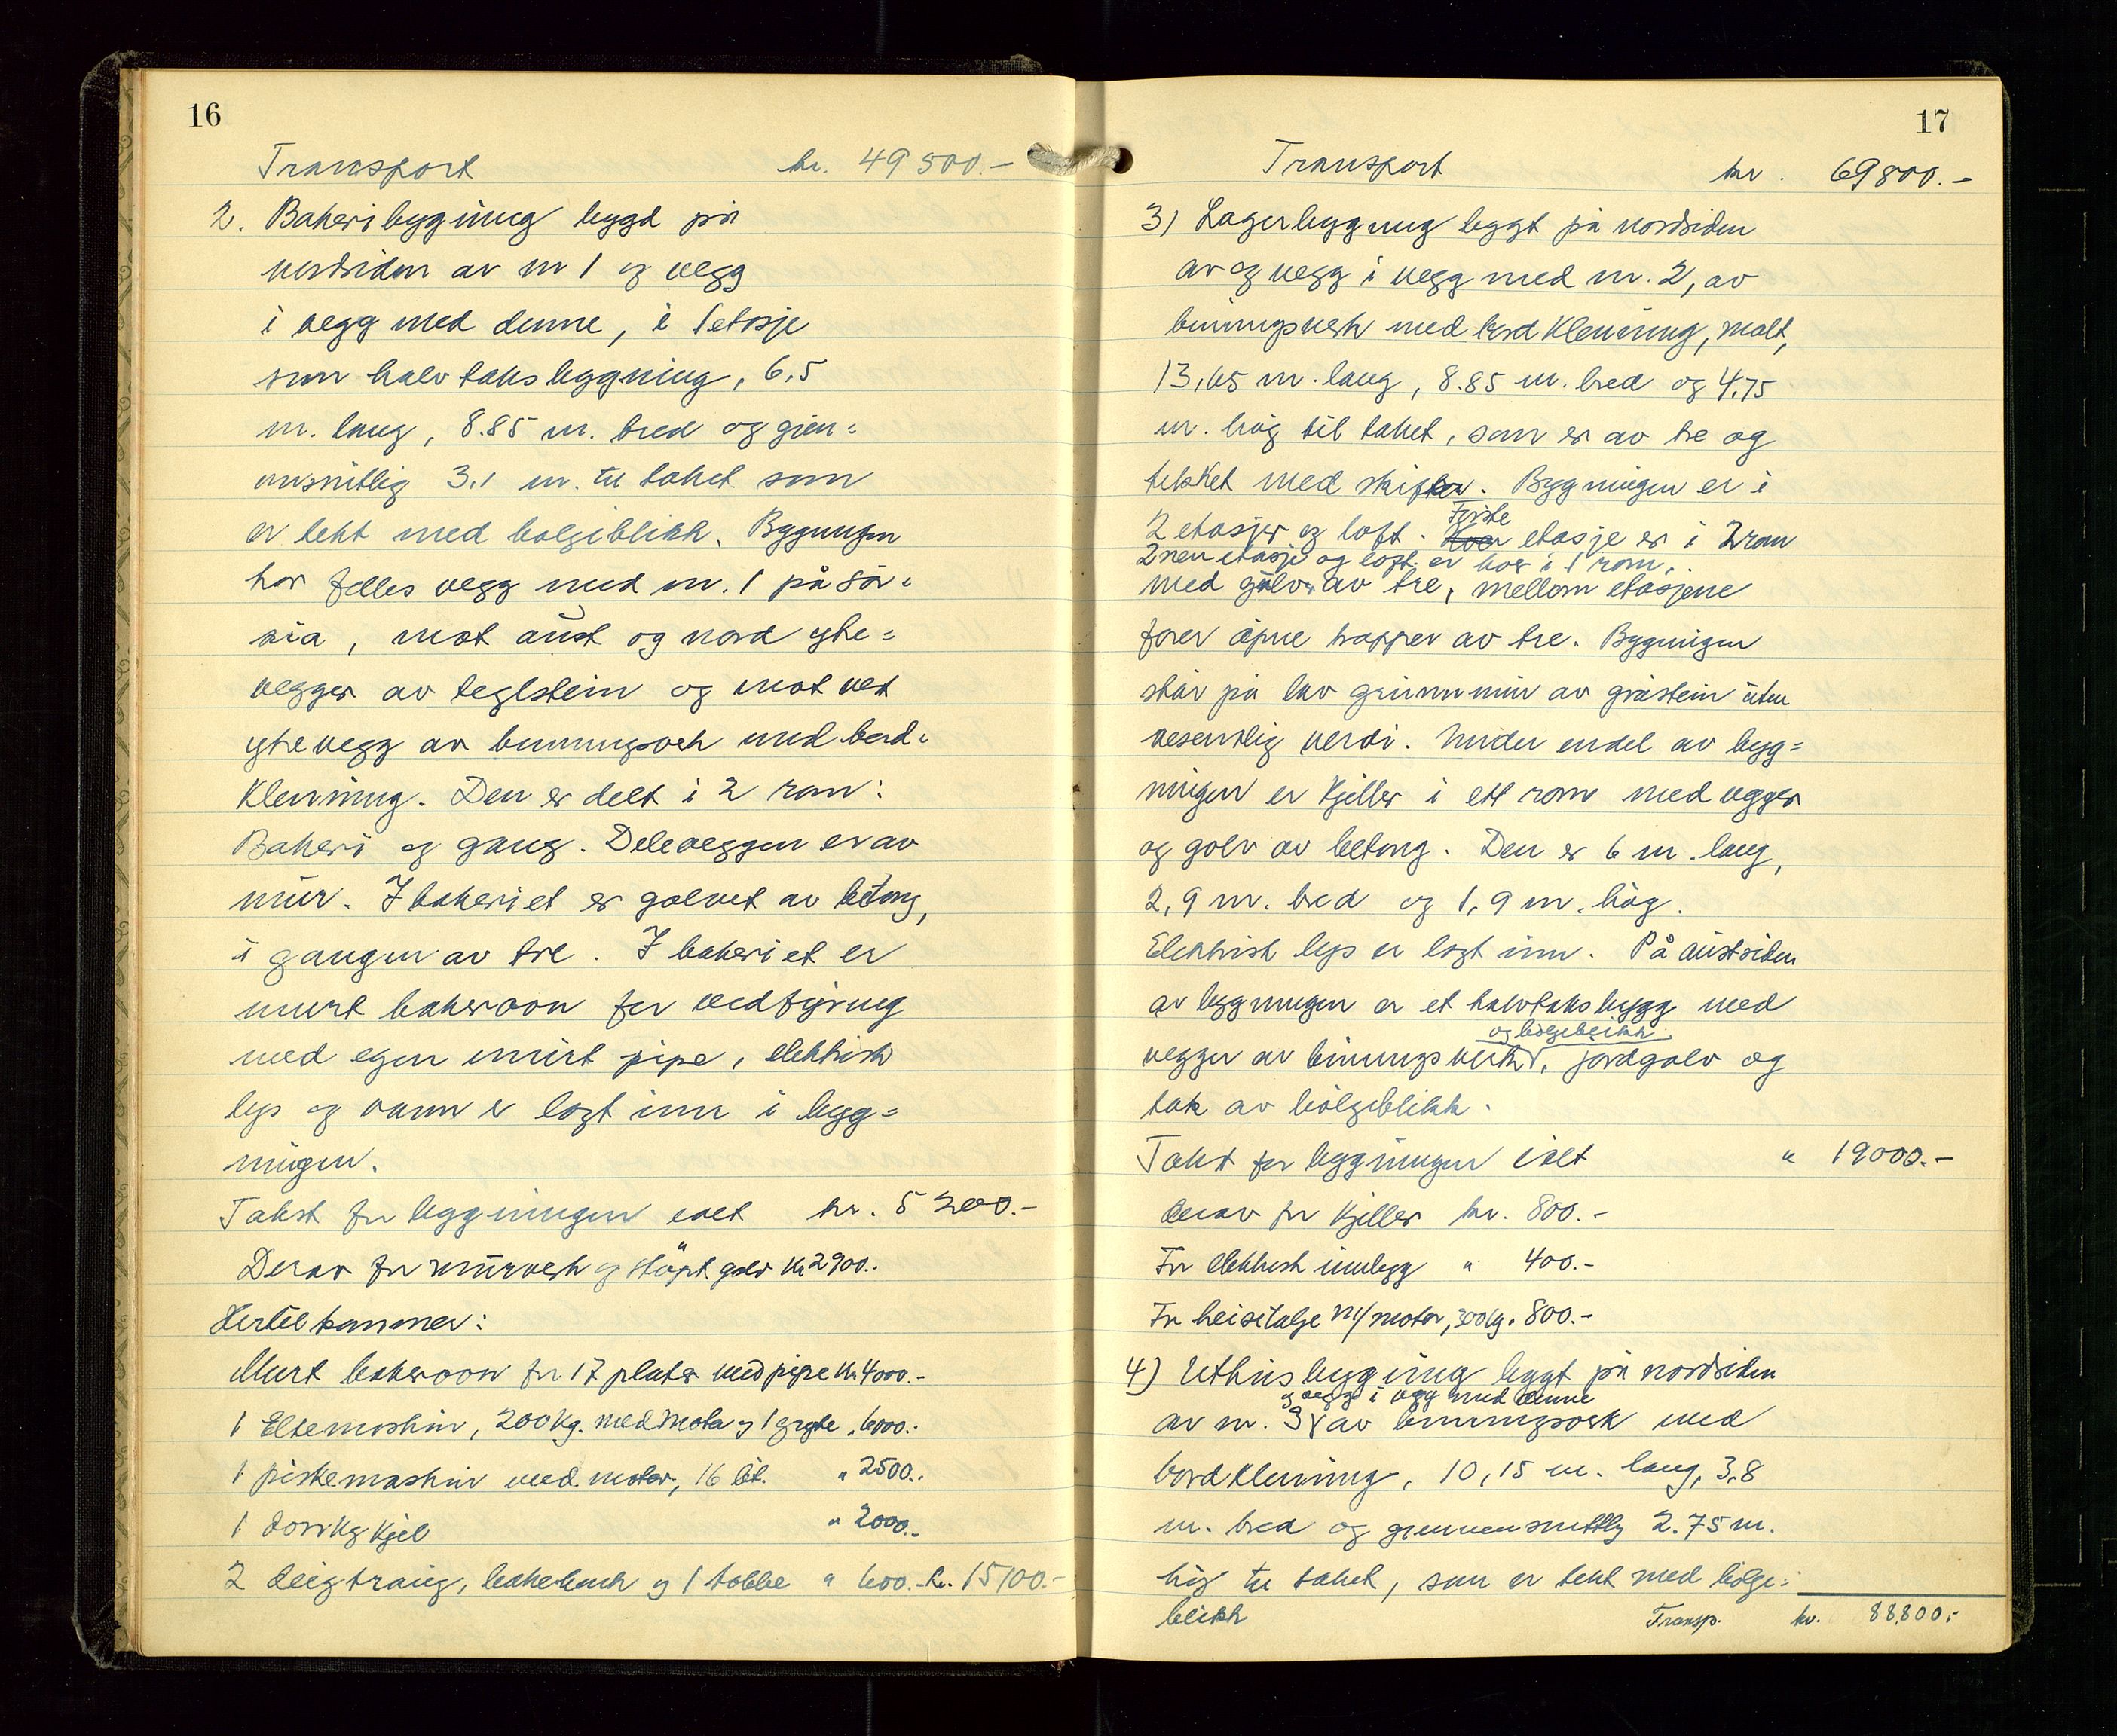 16
Transport kr. 49500.-
2. Bakeribygning bygd på
nordsiden av nr 1 og vegg
i vegg med denne, i 1 etasje
som halvtaksbyggning, 6,5
m. lang, 8.85 m. bred og gjen=
omsnitlig 3,1 m. til taket som
er tekt med bølgeblikk. Bygningen
har felles vegg med nr. 1 på sør-
sia, mot aust og nord ytre=
vegger av teglstein og mot vest
ytrevegg av bindingsverk med bord-
kledning. Den er delt i 2 rom:
Bakeri og gang. Deleveggen er av
mur. I bakeriet er golvet av betong,
i gangen av tre. I bakeriet er
murt bakerovn for vedfyring
med egen murt pipe, elektrisk
lys og vann er lagt inn i bygg=
ningen.
Takst for byggningen ialt kr. 5200.-
Derav for murverk og støpt golv kr 2900.-
Hertil kommer:
Murt bakerovn for 17 plater med pipe kr. 4000.-
1 Eltemaskin, 200 kg. med motor og 1 gryte " 6000.-
1 piskemaskin med motor, 16 lit. " 2500.-
1 kjel " 2000.-
2 deigtraug, bakebenk og 1 tobbe " 600.- kr. 15100.-
17
Transport kr. 69800.-
3) Lagerbyggning byggt på nordsiden
av og vegg i vegg med nr. 2, av
bindingsverk med bordkledning, malt,
13,65 m. lang, 8.85 m. bred og 4,75
m. høg til taket, som er av tre og
tekket med skifer. Bygningen er i
2 etasjer og loft. Første etasje er i 2 rom
2nen etasje og loft er hver i 1 rom,
med golv av tre, mellom etasjene
fører åpne trapper av tre. Bygningen
står på lav grunnmur av gråstein uten
vesentlig verdi. Under endel av byg=
ningen er kjeller i ett rom med vegger
og golv av betong. Den er 6 m. lang,
2,9 m. bred og 1,9 m. høg.
Elektrisk lys er lagt inn. På austsiden
av bygningen er et halvtaksbygg med
og bølgeblikk
vegger av bindingsverk, jordgolv og
tak av bølgeblikk.
Takst for byggningen ialt " 19000.-
derav for kjeller kr. 800.-
For elektrisk innlegg " 400.-
For heisetalje m/motor, 300 kg. 800.-
4) Uthusbygning byggt på nordsiden
og vegg i vegg med denne
av nr. 3 av bindingsverk med
bordkledning, 10,15 m. lang, 3,8
m. bred og gjennemsnittlig 2.75 m.
høg til taket, som er tekt med bølge=
blikk Transp. kr. 88800.-